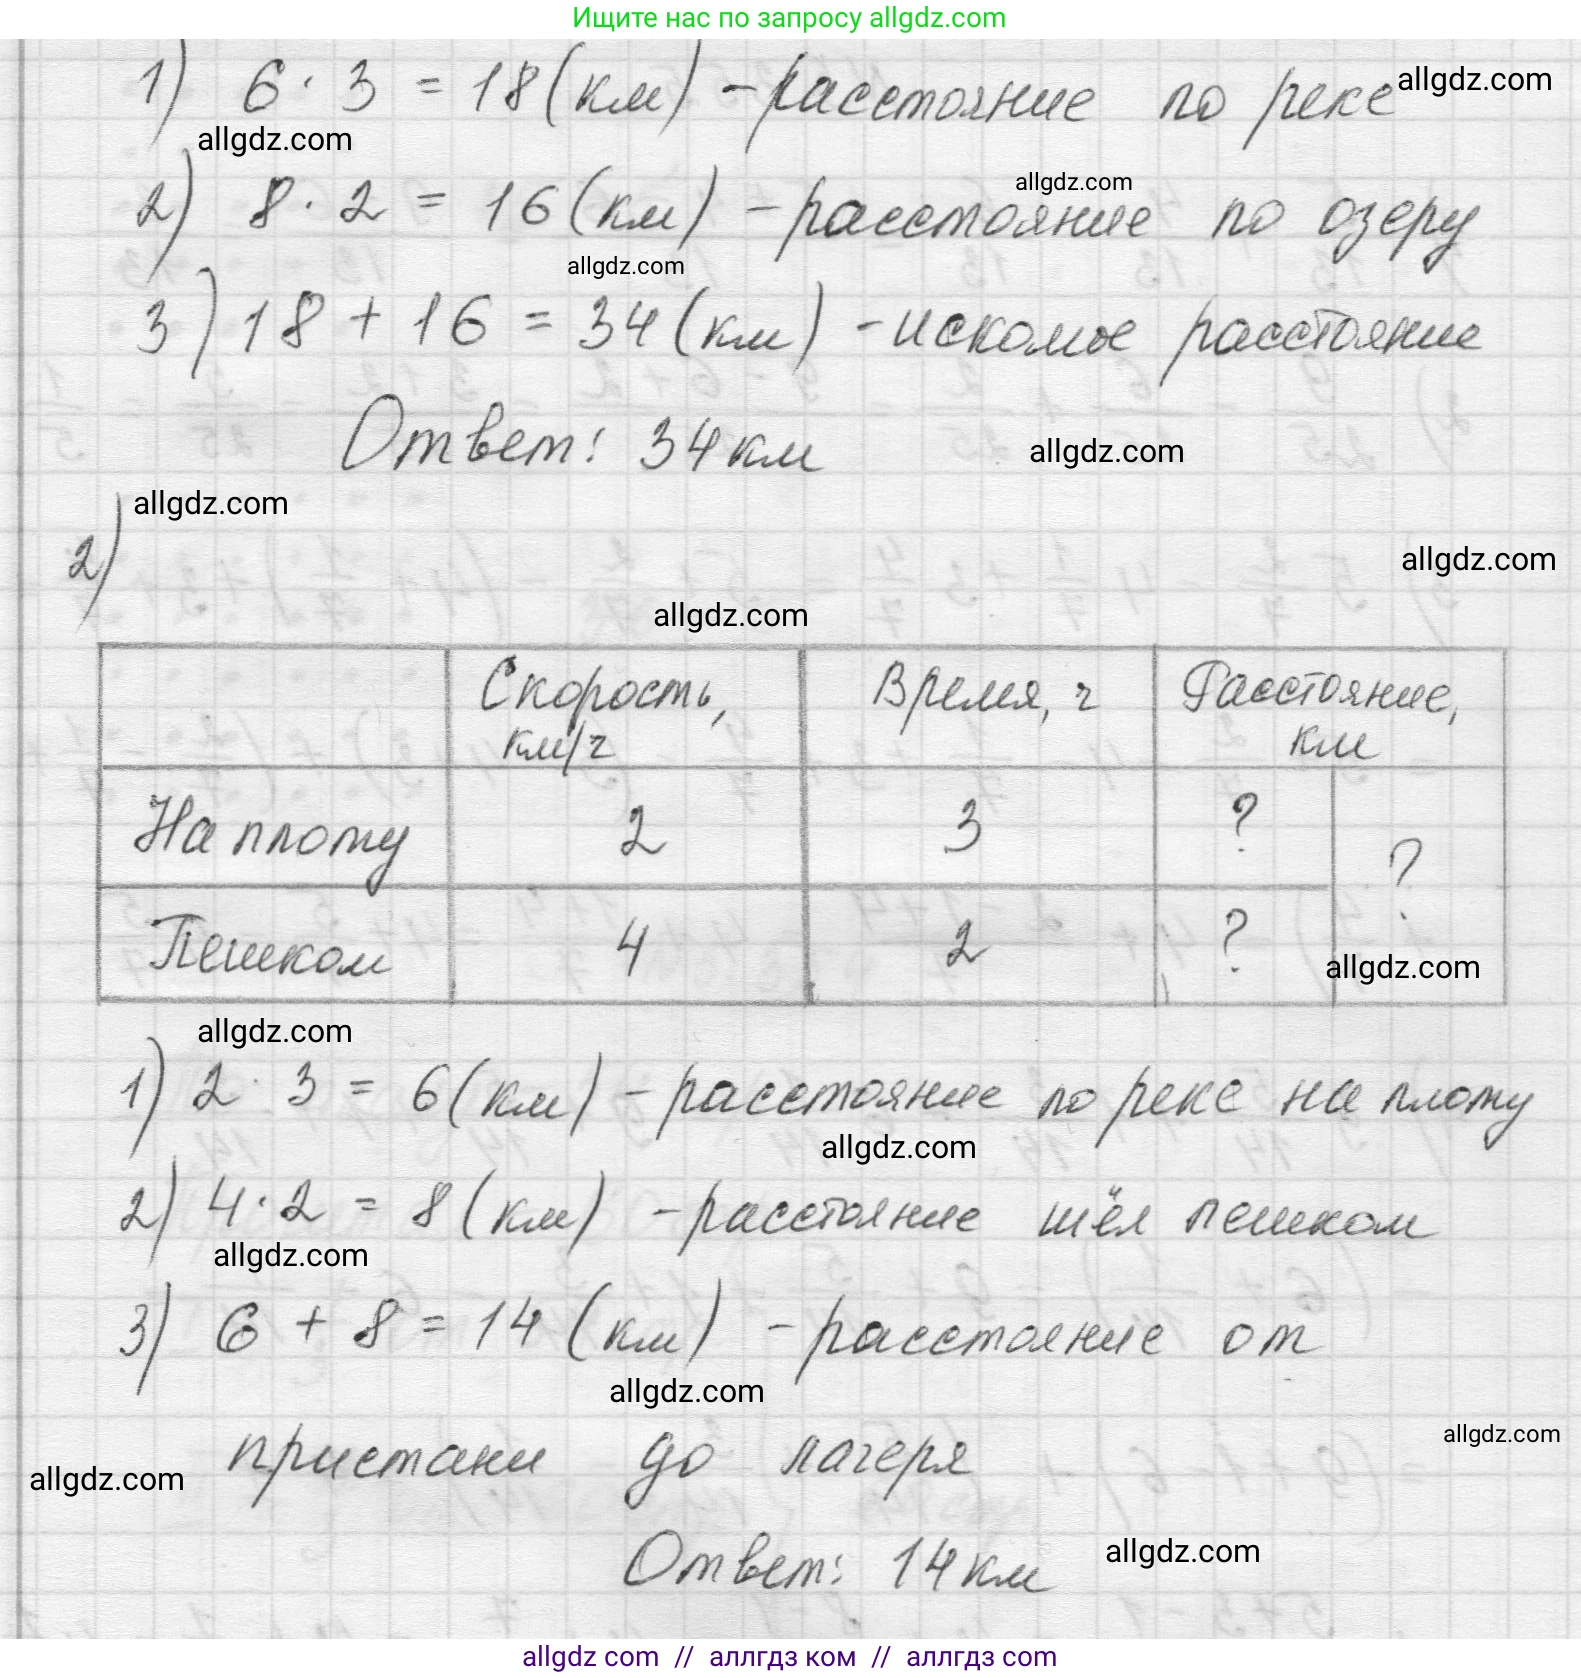 Ищите нас по запросу allgdz.com
1) 6 · 3 = 18 (км) - расстояние по реке allgdz.com
allgdz.com
2) 8 · 2 = 16 (км) - расстояние по озеру
allgdz.com
allgdz.com
3) 18 + 16 = 34 (км) - искомое расстояние
Ответ: 34 км
allgdz.com
allgdz.com
2)
allgdz.com
allgdz.com
Скорость, км/ч Время, ч Расстояние, км
На плоту 2 3 ? ?
Пешком 4 2 ?
allgdz.com
allgdz.com
1) 2 · 3 = 6 (км) - расстояние по реке на плоту
allgdz.com
2) 4 · 2 = 8 (км) - расстояние шёл пешком
allgdz.com
3) 6 + 8 = 14 (км) - расстояние от
allgdz.com
пристани до лагеря
allgdz.com
allgdz.com
Ответ: 14 км
allgdz.com
allgdz com // аллгдз ком // аллгдз com